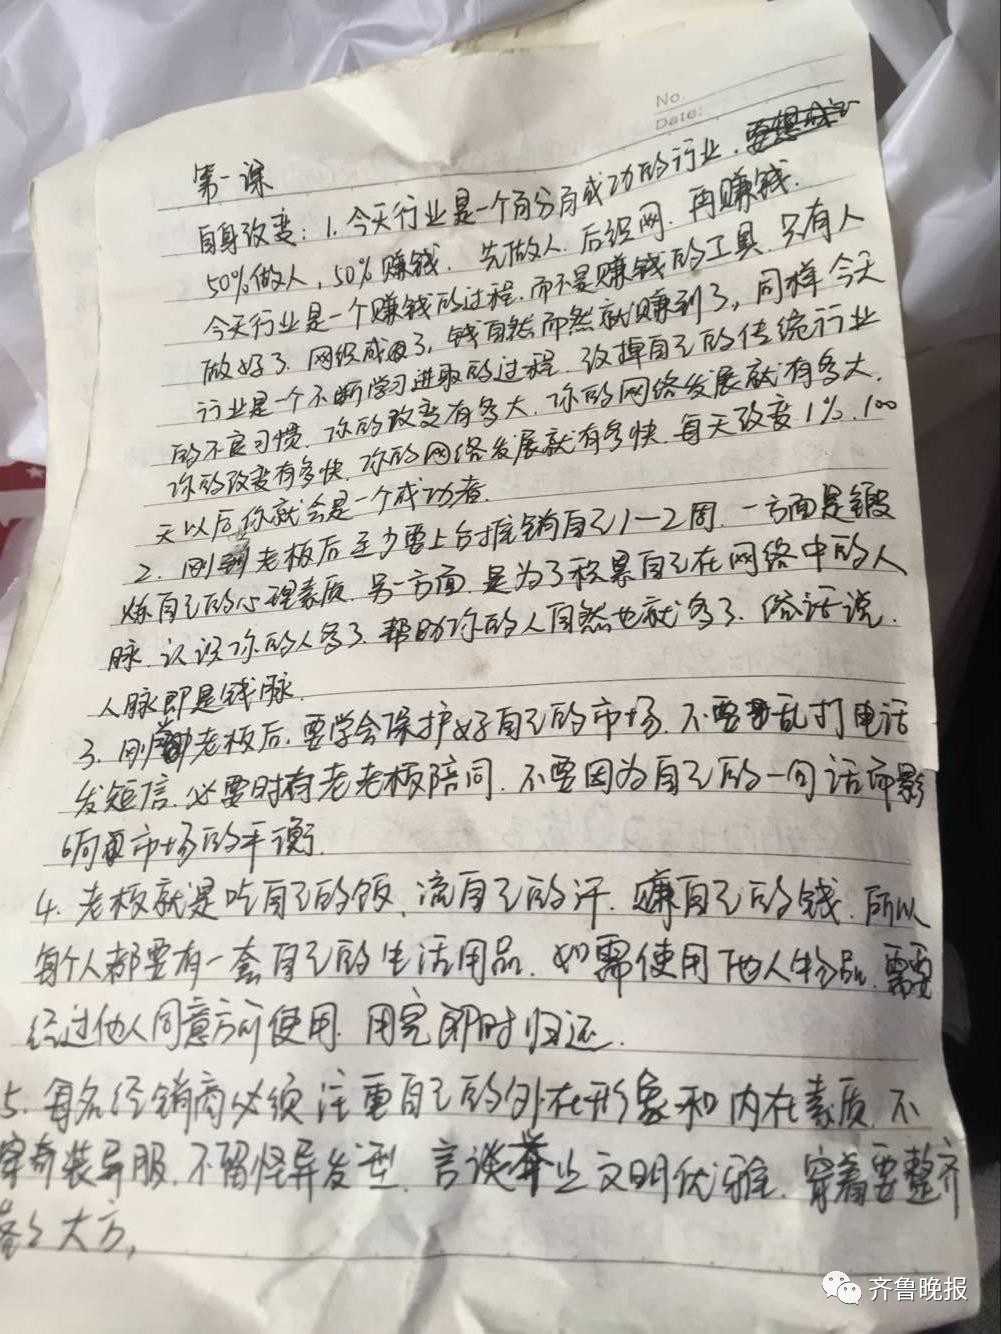 No.
Date:
第一课
自身改变：1. 今天行业是一个百分百成功的行业，要想成
50%做人，50%赚钱．先做人．后织网．再赚钱．
今天行业是一个赚钱的过程．而不是赚钱的工具．只有人
做好了．网织成了，钱自然而然就赚到了，同样今天
行业是一个不断学习进取的过程．改掉自己的传统行业
的不良习惯．你的改变有多大．你的网络发展就有多大．
你的改变有多快．你的网络发展就有多快．每天改变1%．100
天以后你就会是一个成功者．
2. 刚到老板后至少要上台推销自己1一2周．一方面是锻
炼自己的心理素质．另一方面．是为了积累自己在网络中的人
脉．认识你的人多了．帮助你的人自然也就多了．俗话说．
人脉即是钱脉．
3. 刚 老板后．要学会保护好自己的市场．不要乱打电话
发短信．必要时有老老板陪同．不要因为自己的一句话而影
响市场的平衡．
4. 老板就是吃自己的饭、流自己的汗．赚自己的钱．所以
每个人都要有一套自己的生活用品．如需使用他人物品．需要
经过他人同意方可使用．用完即时归还．
5. 每名经销商必须注重自己的外在形象和内在素质．不
穿奇装异服．不留怪异发型．言谈举止文明优雅．穿着要整齐
大方，
齐鲁晚报